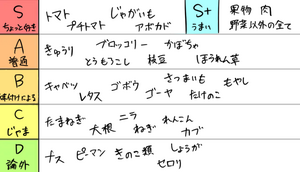 S ちょっと好き トマト じゃがいも
プチトマト アボカド
S+ うまい 果物 肉
野菜以外の全て
A 普通 きゅうり ブロッコリー かぼちゃ
とうもろこし 枝豆 ほうれん草
B 味付けによる キャベツ ゴボウ さつまいも もやし
レタス ゴーヤ たけのこ
C じゃま たまねぎ ニラ れんこん
大根 ねぎ カブ
D 論外 ナス ピーマン きのこ類 しょうが
セロリ